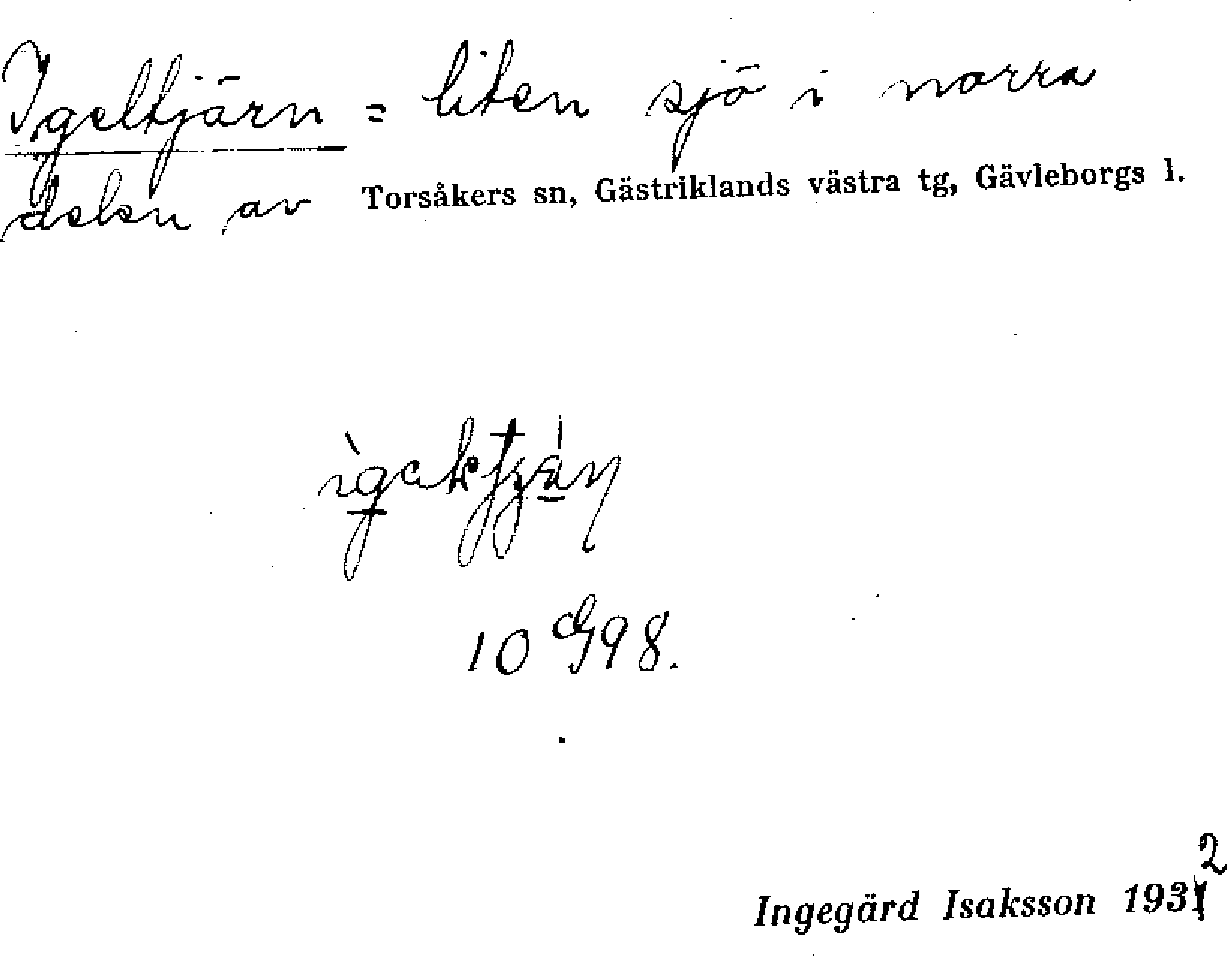 Igeltjärn = liten sjö i norra
delen av Torsåkers sn, Gästriklands västra tg, Gävleborgs l.
10 G98.
Ingegärd Isaksson 1932